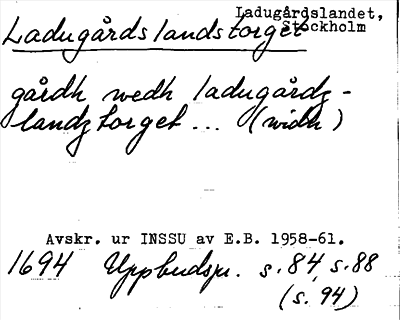 Ladugårdslandet,
Stockholm
Ladugårdslandstorget
gårdh wedh ladugårdz-
landz torget ... (widh)
Avskr. ur INSSU av E.B. 1958-61.
1694 Uppbudspr. s. 84, s. 88
(s. 94)